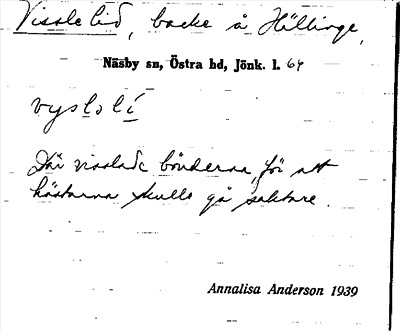 Vissle lid, backe å Hällinge,
Näsby sn, Östra hd, Jönk. l. 64
vysləlí
Där visslade bönderna, för att
hästarna skulle gå saktare.
Annalisa Anderson 1939